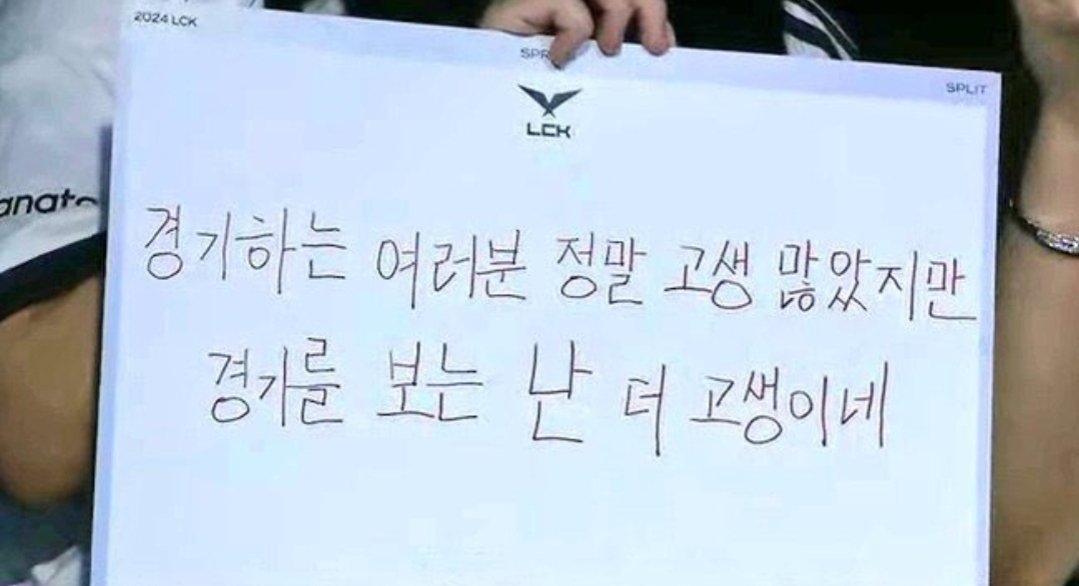 2024 LCK
SPLIT
LCK
경기하는 여러분 정말 고생 많았지만
경기를 보는 난 더 고생이네